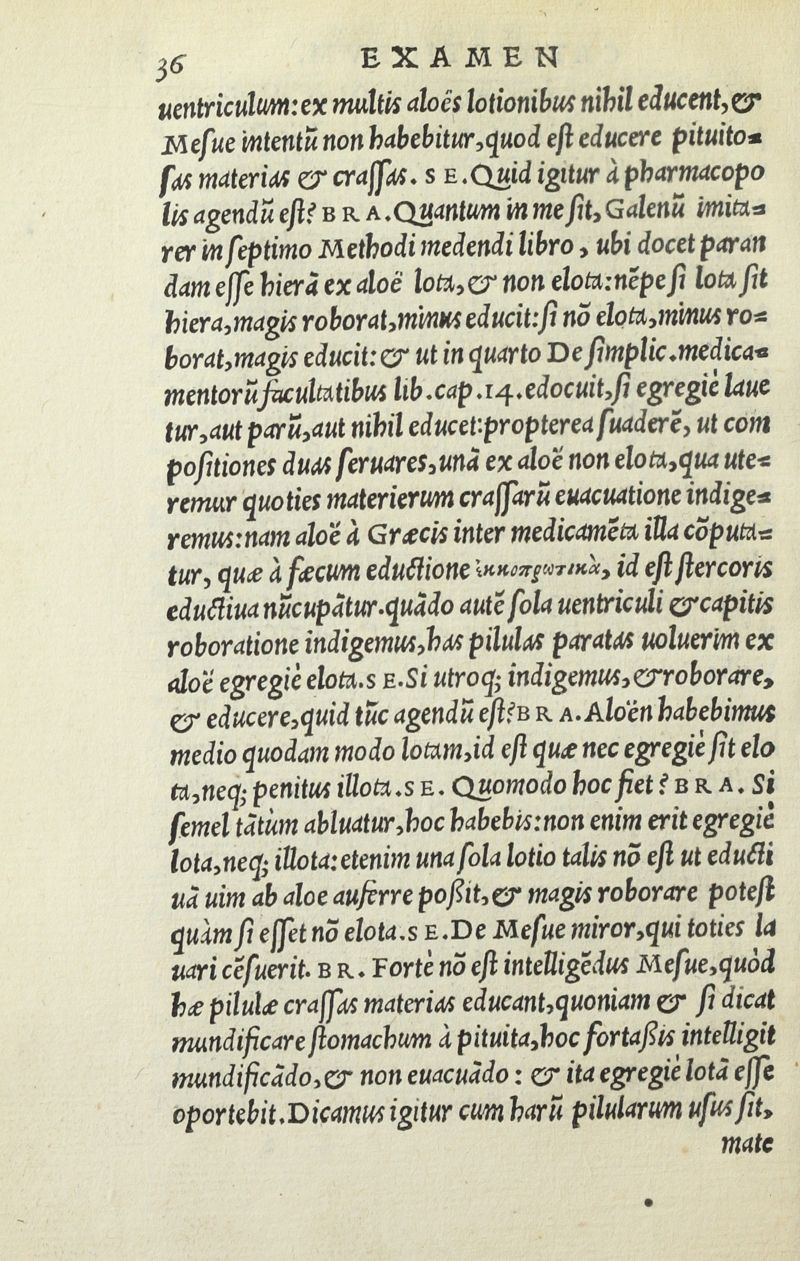 36 EXAMEN
uentriculum: ex multis aloës lotionibus nihil educent, &
Mesue intentū non habebitur, quod est educere pituito=
sas materias & crassas. S E. Quid igitur à pharmacopo
lis agendū est? B R A. Quantum in me sit, Galenū imita=
rer in septimo Methodi medendi libro, ubi docet paran
dam esse hierā ex aloë lota, & non elota: nēpe si lota sit
hiera, magis roborat, minus educit: si nō elota, minus ro=
borat, magis educit: & ut in quarto De simplic. medica=
mentorū facultatibus lib. cap. 14. edocuit, si egregiè laue
tur, aut parū, aut nihil educet: propterea suaderē, ut com
positiones duas seruares, unā ex aloë non elota, qua ute=
remur quoties materierum crassarū euacuatione indige=
remus: nam aloë à Græcis inter medicamēta illa cōputa=
tur, quæ à fæcum eductione ἐκκοπρωτικὰ, id est stercoris
eductiua nūcupātur. quādo autē sola uentriculi & capitis
roboratione indigemus, has pilulas paratas uoluerim ex
aloë egregiè elota. S E. Si utroq; indigemus, & roborare,
& educere, quid tūc agendū est? B R A. Aloën habebimus
medio quodam modo lotam, id est quæ nec egregiè sit elo
ta, neq; penitus illota. S E. Quomodo hoc fiet? B R A. Si
semel tātùm abluatur, hoc habebis: non enim erit egregiè
lota, neq; illota: etenim una sola lotio talis nō est ut educti
uā uim ab aloe auferre poßit, & magis roborare potest
quàm si esset nō elota. S E. De Mesue miror, qui toties la
uari cēsuerit. B R. Fortè nō est intelligēdus Mesue, quòd
hæ pilulæ crassas materias educant, quoniam & si dicat
mundificare stomachum à pituita, hoc fortaßis intelligit
mundificādo, & non euacuādo: & ita egregiè lotā esse
oportebit. Dicamus igitur cum harū pilularum usus sit,
mate